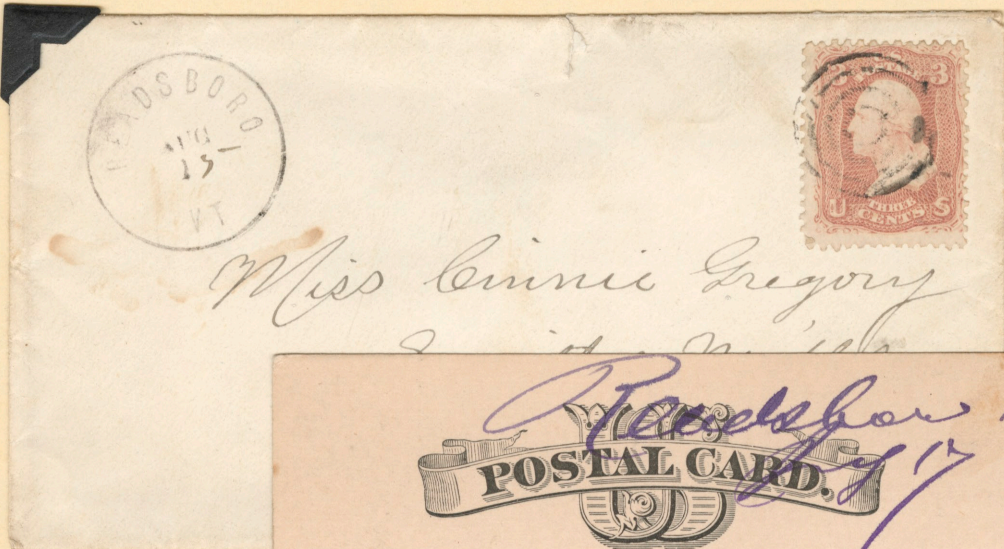 READSBORO,
AUG
15
VT
3
U THREE S
CENTS
Miss Cinnie Gregory
Readsboro
POSTAL CARD.
17